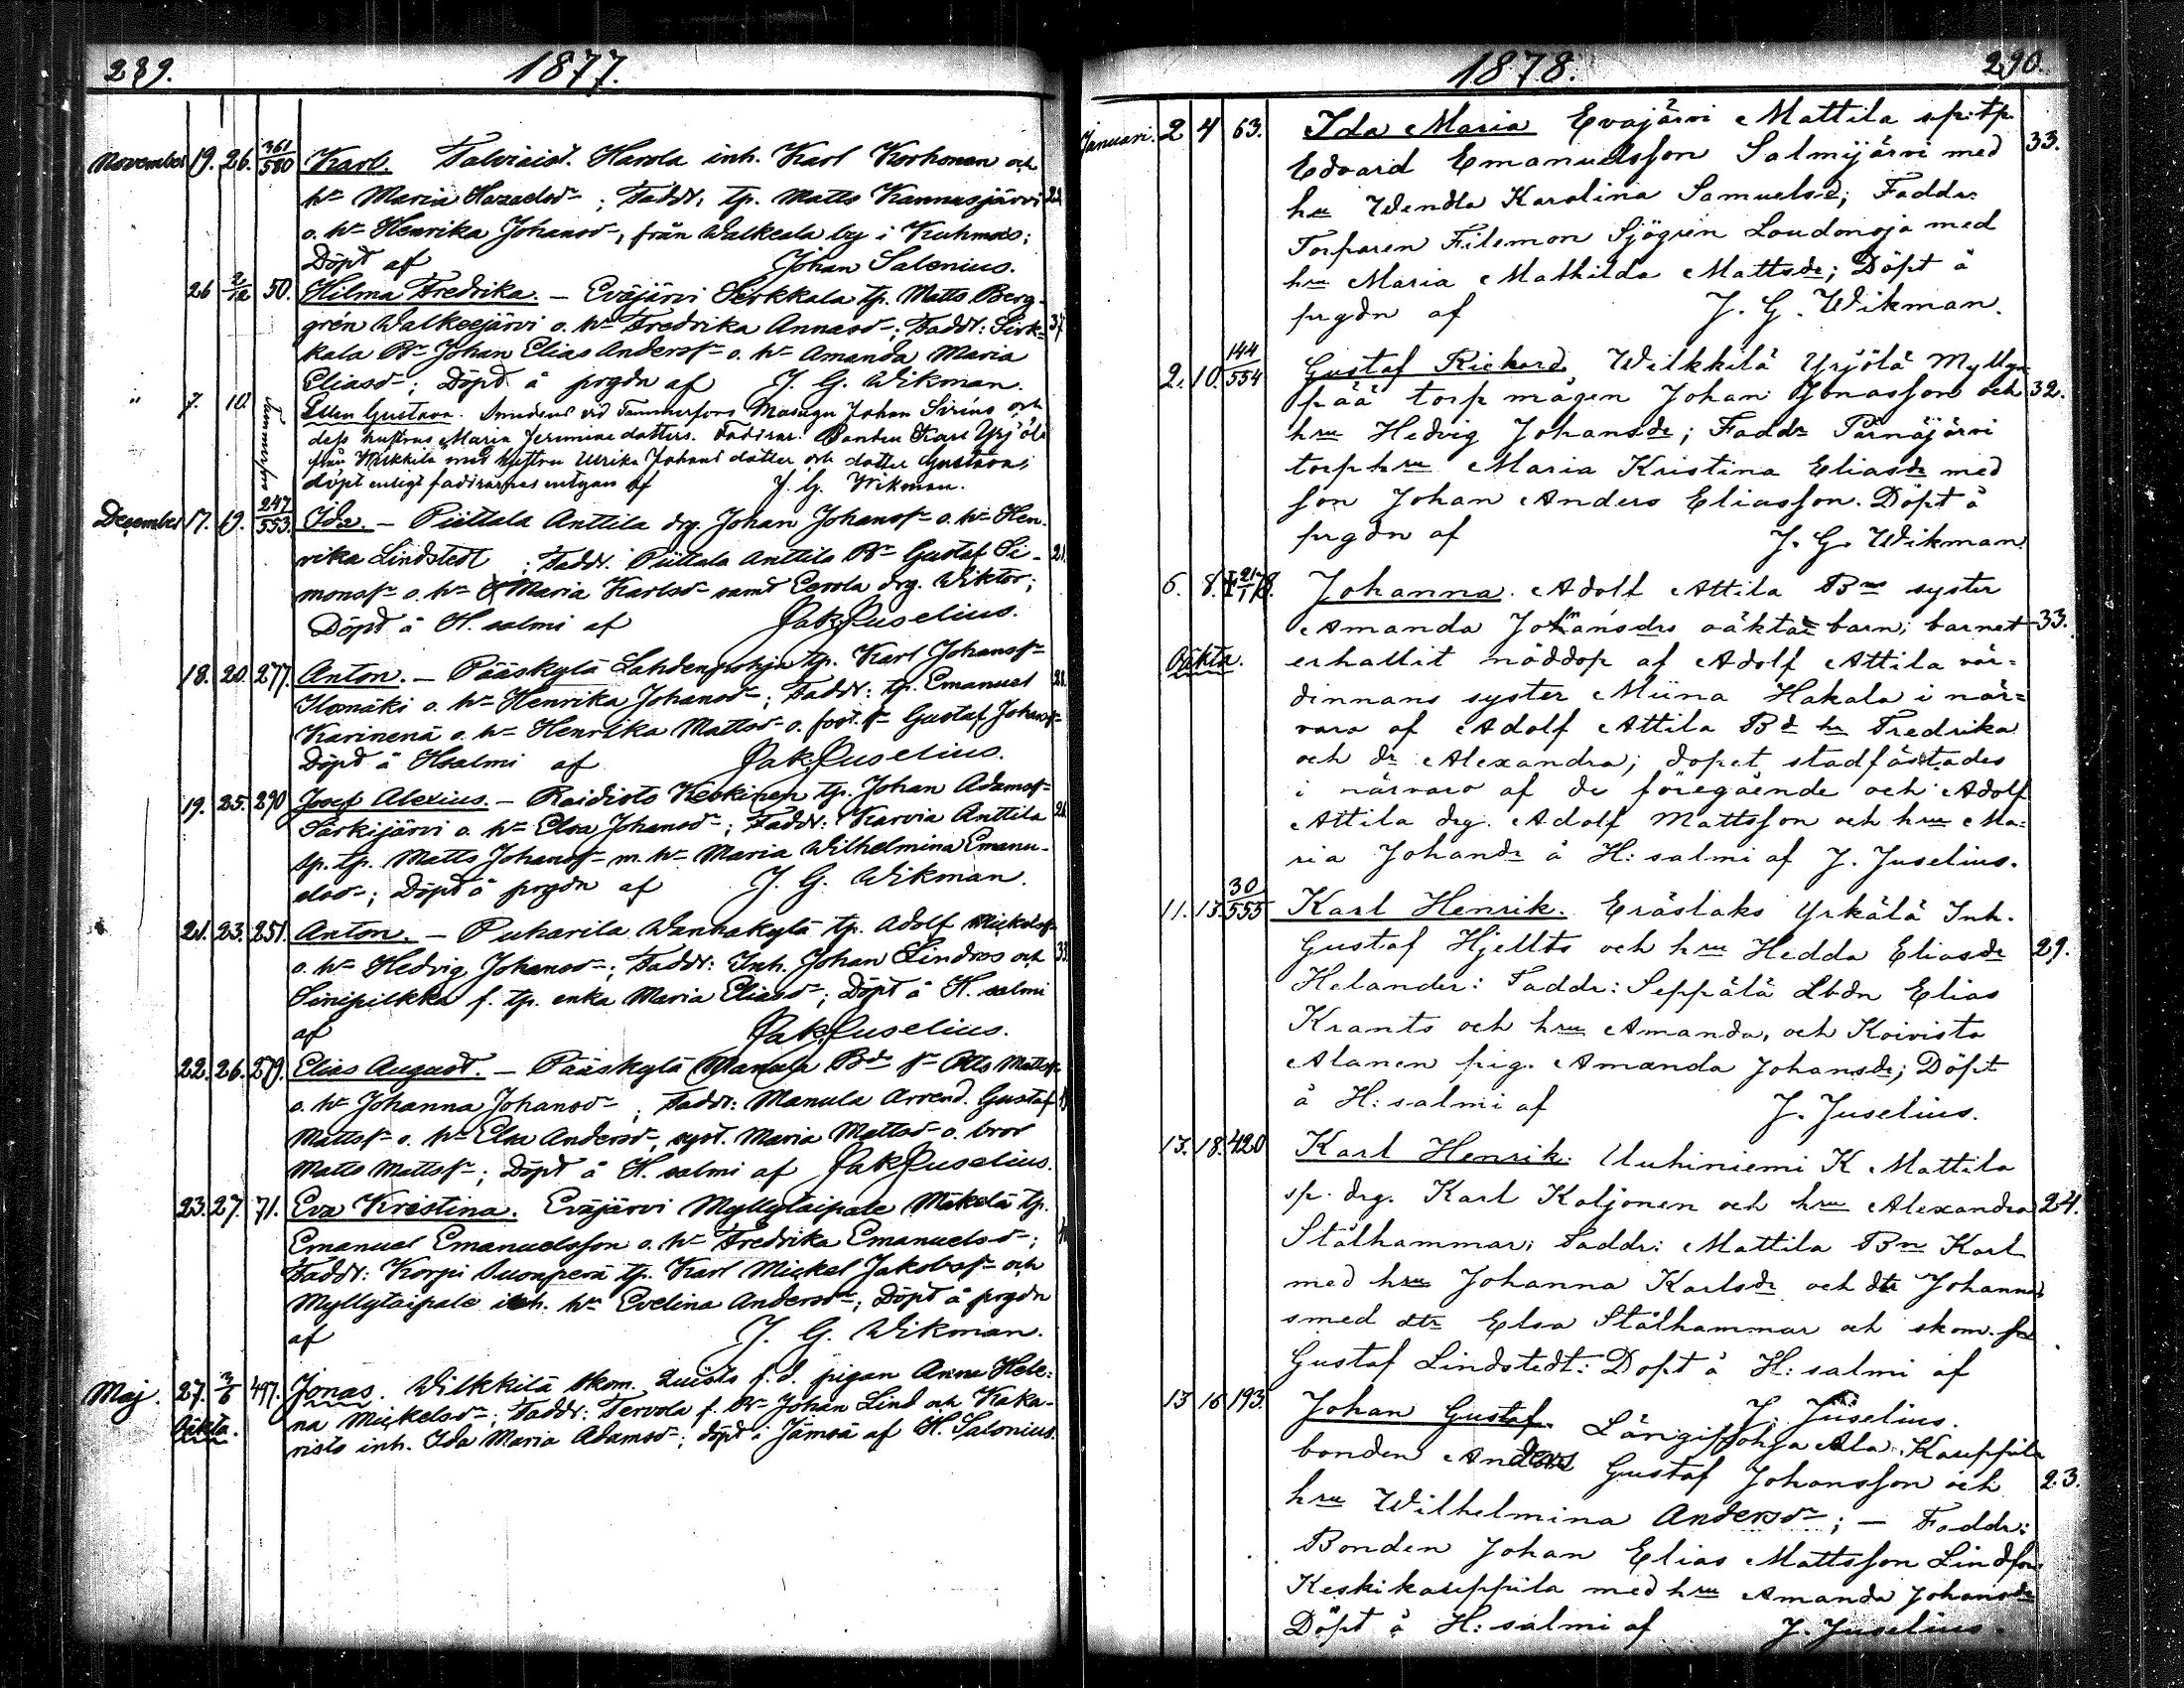 289. 1877.
November 19. 26. 361/580 Karl. Talviaist. Harola inh. Karl Korhonen och
hu Maria Hazaelsdr; Faddr. tp. Matts Kannusjärvi
o. hu Henrika Johansdr, från Walkeala by i Kuhmois;
Döpt af Johan Salenius.
26 2/12 50. Hilma Fredrika. – Eväjärvi Sirkkala tp. Matts Berg-
grén Walkeejärvi o. hu Fredrika Annasdr; Faddr: Sirk- 37
kala Bn Johan Elias Anderssn o. hu Amanda Maria
Eliasdr; Döpt å prgdn af J. G. Wikman.
" 7. 10. Ellen Gustava. Smedens vid Tammerfors Masugn Johan Sirius och
dess hustrus Maria Jeremiae dotters. Faddrar: Bonden Karl Yrjölä
från Wilkkilä med hustru Ulrika Johans dotter och dotter Gustava;
döpt enligt faddrarnes intygan af J. G. Wikman.
December 17. 19. 247/553. Ida. – Piittala Anttila drg. Johan Johanssn o. hu Hen-
rika Lindstedt; Faddr. Piittala Anttila Bn Gustaf Si- 21.
monssn o. hu Maria Karlsdr samt Eerola drg. Wiktor;
Döpt å H. salmi af Jak. Juselius.
18. 20. 277. Anton. – Pääskylä Lahdenpohja tp. Karl Johanssn
Ilomäki o. hu Henrika Johansdr; Faddr: tp. Emanuel 28.
Karinenä o. hu Henrika Mattsdr o. fost. sn Gustaf Johanssn
Döpt å H.salmi af Jak. Juselius.
19. 25. 290 Josef Alexius. – Raidisto Keskinen tp. Johan Adamssn
Särkijärvi o. hu Elsa Johansdr; Faddr: Karvia Anttila 26.
sp. tp. Matts Johanssn m. hu Maria Wilhelmina Emanu-
elsdr; Döpt å prgdn af J. G. Wikman.
21. 23. 251. Anton. – Puharila Wanhakylä tp. Adolf Mickelssn
o. hu Hedvig Johansdr; Faddr: Inh. Johan Lindros och 33.
Sinipilkka f. tp. enka Maria Eliasdr; Döpt å H. salmi
af Jak. Juselius.
22. 26. 279. Elias August. – Pääskylä Manula Bds sn Otto Mattssn
o. hu Johanna Johansdr; Faddr: Manula Arrend. Gustaf
Mattssn o. hu Elsa Andersdr, syst. Maria Mattsdr o. bror
Matts Mattssn; Döpt å H. salmi af Jak Juselius.
23. 27. 71. Eva Kristina. Eväjärvi Myllytaipale Mäkelä tp.
Emanuel Emanuelsson o. hu Fredrika Emanuelsdr;
Faddr: Korpi Suonperä tp. Karl Mickel Jakobssn och
Myllytaipale inh. hu Evelina Andersdr; Döpt å prgdn
af J. G. Wikman.
Maj. 27. 3/6 497. Jonas. Wilkkilä skom. Quists f. d. pigan Anna Hele-
Oäkta. na Mickelsdr; Faddr: Tervola f. Bn Johan Lind och Kaka-
risto inh. Ida Maria Adamsdr; döpt i Jämsä af H. Salonius.
1878. 290.
Januari. 2 4 63. Ida Maria Evajärvi Mattila sp: tp.
Edvard Emanuelsson Salmijärvi med 33.
hu Wendla Karolina Samuelsd; Faddr.
Torparen Filemon Sjögrén Laudonoja med
hru Maria Mathilda Mattsdr; Döpt å
prgdn af J. G. Wikman.
2. 10. 144/554 Gustaf Rickard. Wilkkilä Yrjölä Mylly-
pää torp mågen Johan Jonasson och 32.
hru Hedvig Johansdr; Faddr Pärnäjärvi
torp hru Maria Kristina Eliasdr med
son Johan Anders Eliasson. Döpt å
prgdn af J. G. Wikman.
6. 8. Johanna. Adolf Attila Bns syster
Amanda Johansdrs oäkta barn; barnet 33.
Oäkta. erhallit nöddop af Adolf Attila vär-
dinnans syster Miina Hakala i när-
varo af Adolf Attila Bd hu Fredrika
och dr Alexandra; dopet stadfästades
i närvaro af de föregående och Adolf
Attila drg. Adolf Mattsson och hru Ma-
ria Johansdr å H: salmi af J. Juselius.
11. 13. 30/555 Karl Henrik. Eräslaks Yrkälä Inh.
Gustaf Hjellts och hru Hedda Eliasdr 29.
Helander: Faddr: Seppälä Lbdn Elias
Krants och hru Amanda, och Koivisto
Alanen pig. Amanda Johansdr; Döpt
å H: salmi af J. Juselius.
13. 18. 420 Karl Henrik. Uuhiniemi K Mattila
sp. drg. Karl Koljonen och hru Alexandra 24.
Stålhammar; Faddr: Mattila Bn Karl
med hru Johanna Karlsdr och dtr Johanna
smed dtr Elsa Stålhammar och skom. sn
Gustaf Lindstedt: Dopt å H: salmi af
J. Juselius.
13 16 193. Johan Gustaf. Längipohja Ala. Kauppila
bonden Anders Gustaf Johansson och 23.
hru Wilhelmina Andersdr; – Faddr:
Bonden Johan Elias Mattsson Lindfors
Keskikauppila med hru Amanda Johansdr
Döpt å H: salmi af J. Juselius.